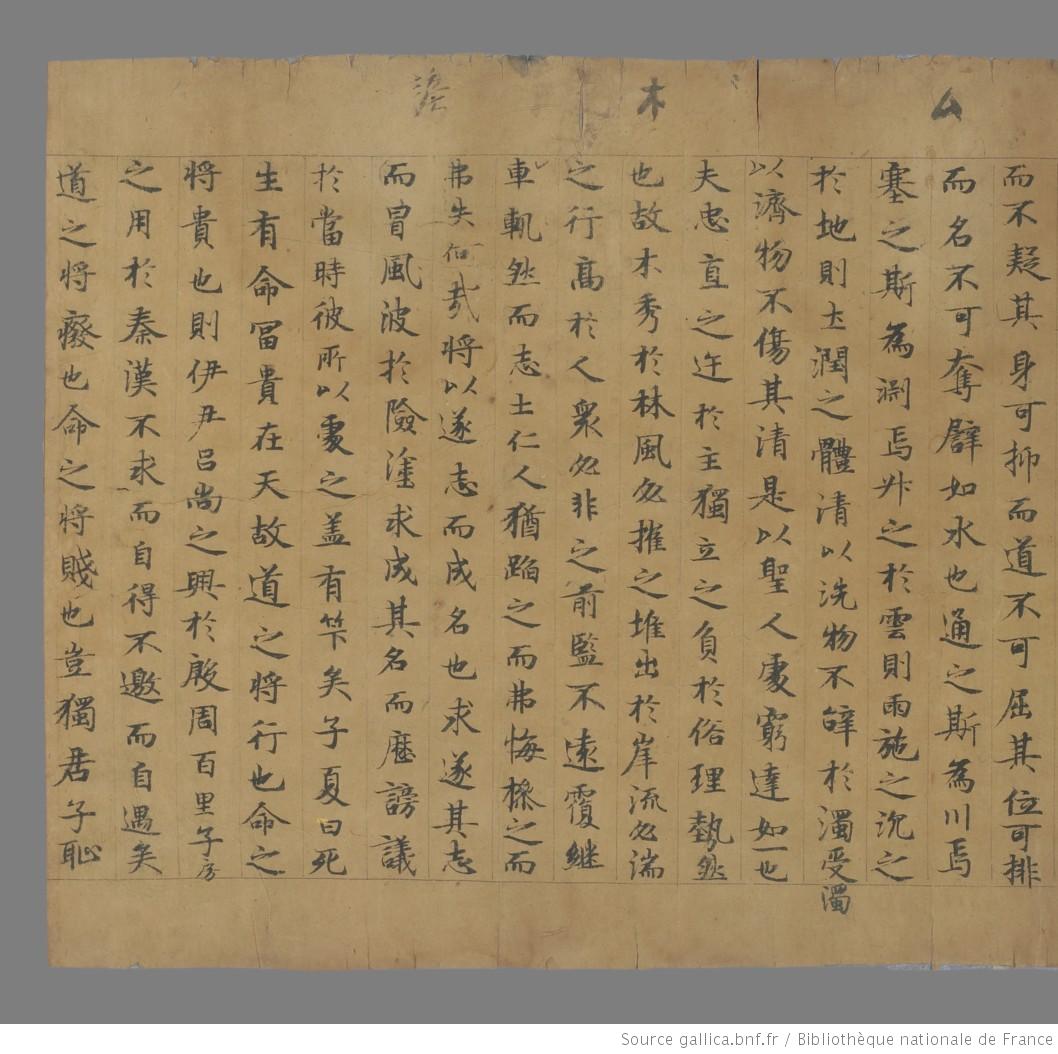 厶
木
而不疑其身可抑而道不可屈其位可排
而名不可奪譬如水也通之斯為川焉
塞之斯為淵焉升之於雲則雨施之沉之
於地則土潤之體清以洗物不於濁受濁
以濟物不傷其清是以聖人處窮達如一也
夫忠直之迕於主獨立之負於俗理勢然
也故木秀於林風必摧之堆出於岸流必湍
之行髙於人衆必非之前監不遠覆継
車軌然而志士仁人猶蹈之而弗悔操之而
弗失何哉將以遂志而成名也求遂其志
而冒風波於險塗求成其名而歷謗議
於當時彼所以處之盖有筭矣子夏曰死
生有命冨貴在天故道之將行也命之
將貴也則伊尹呂尚之興於殷周百里子房
之用於秦漢不求而自得不邀而自遇矣
道之將癈也命之將賤也豈獨君子恥
Source gallica.bnf.fr / Bibliothèque nationale de France